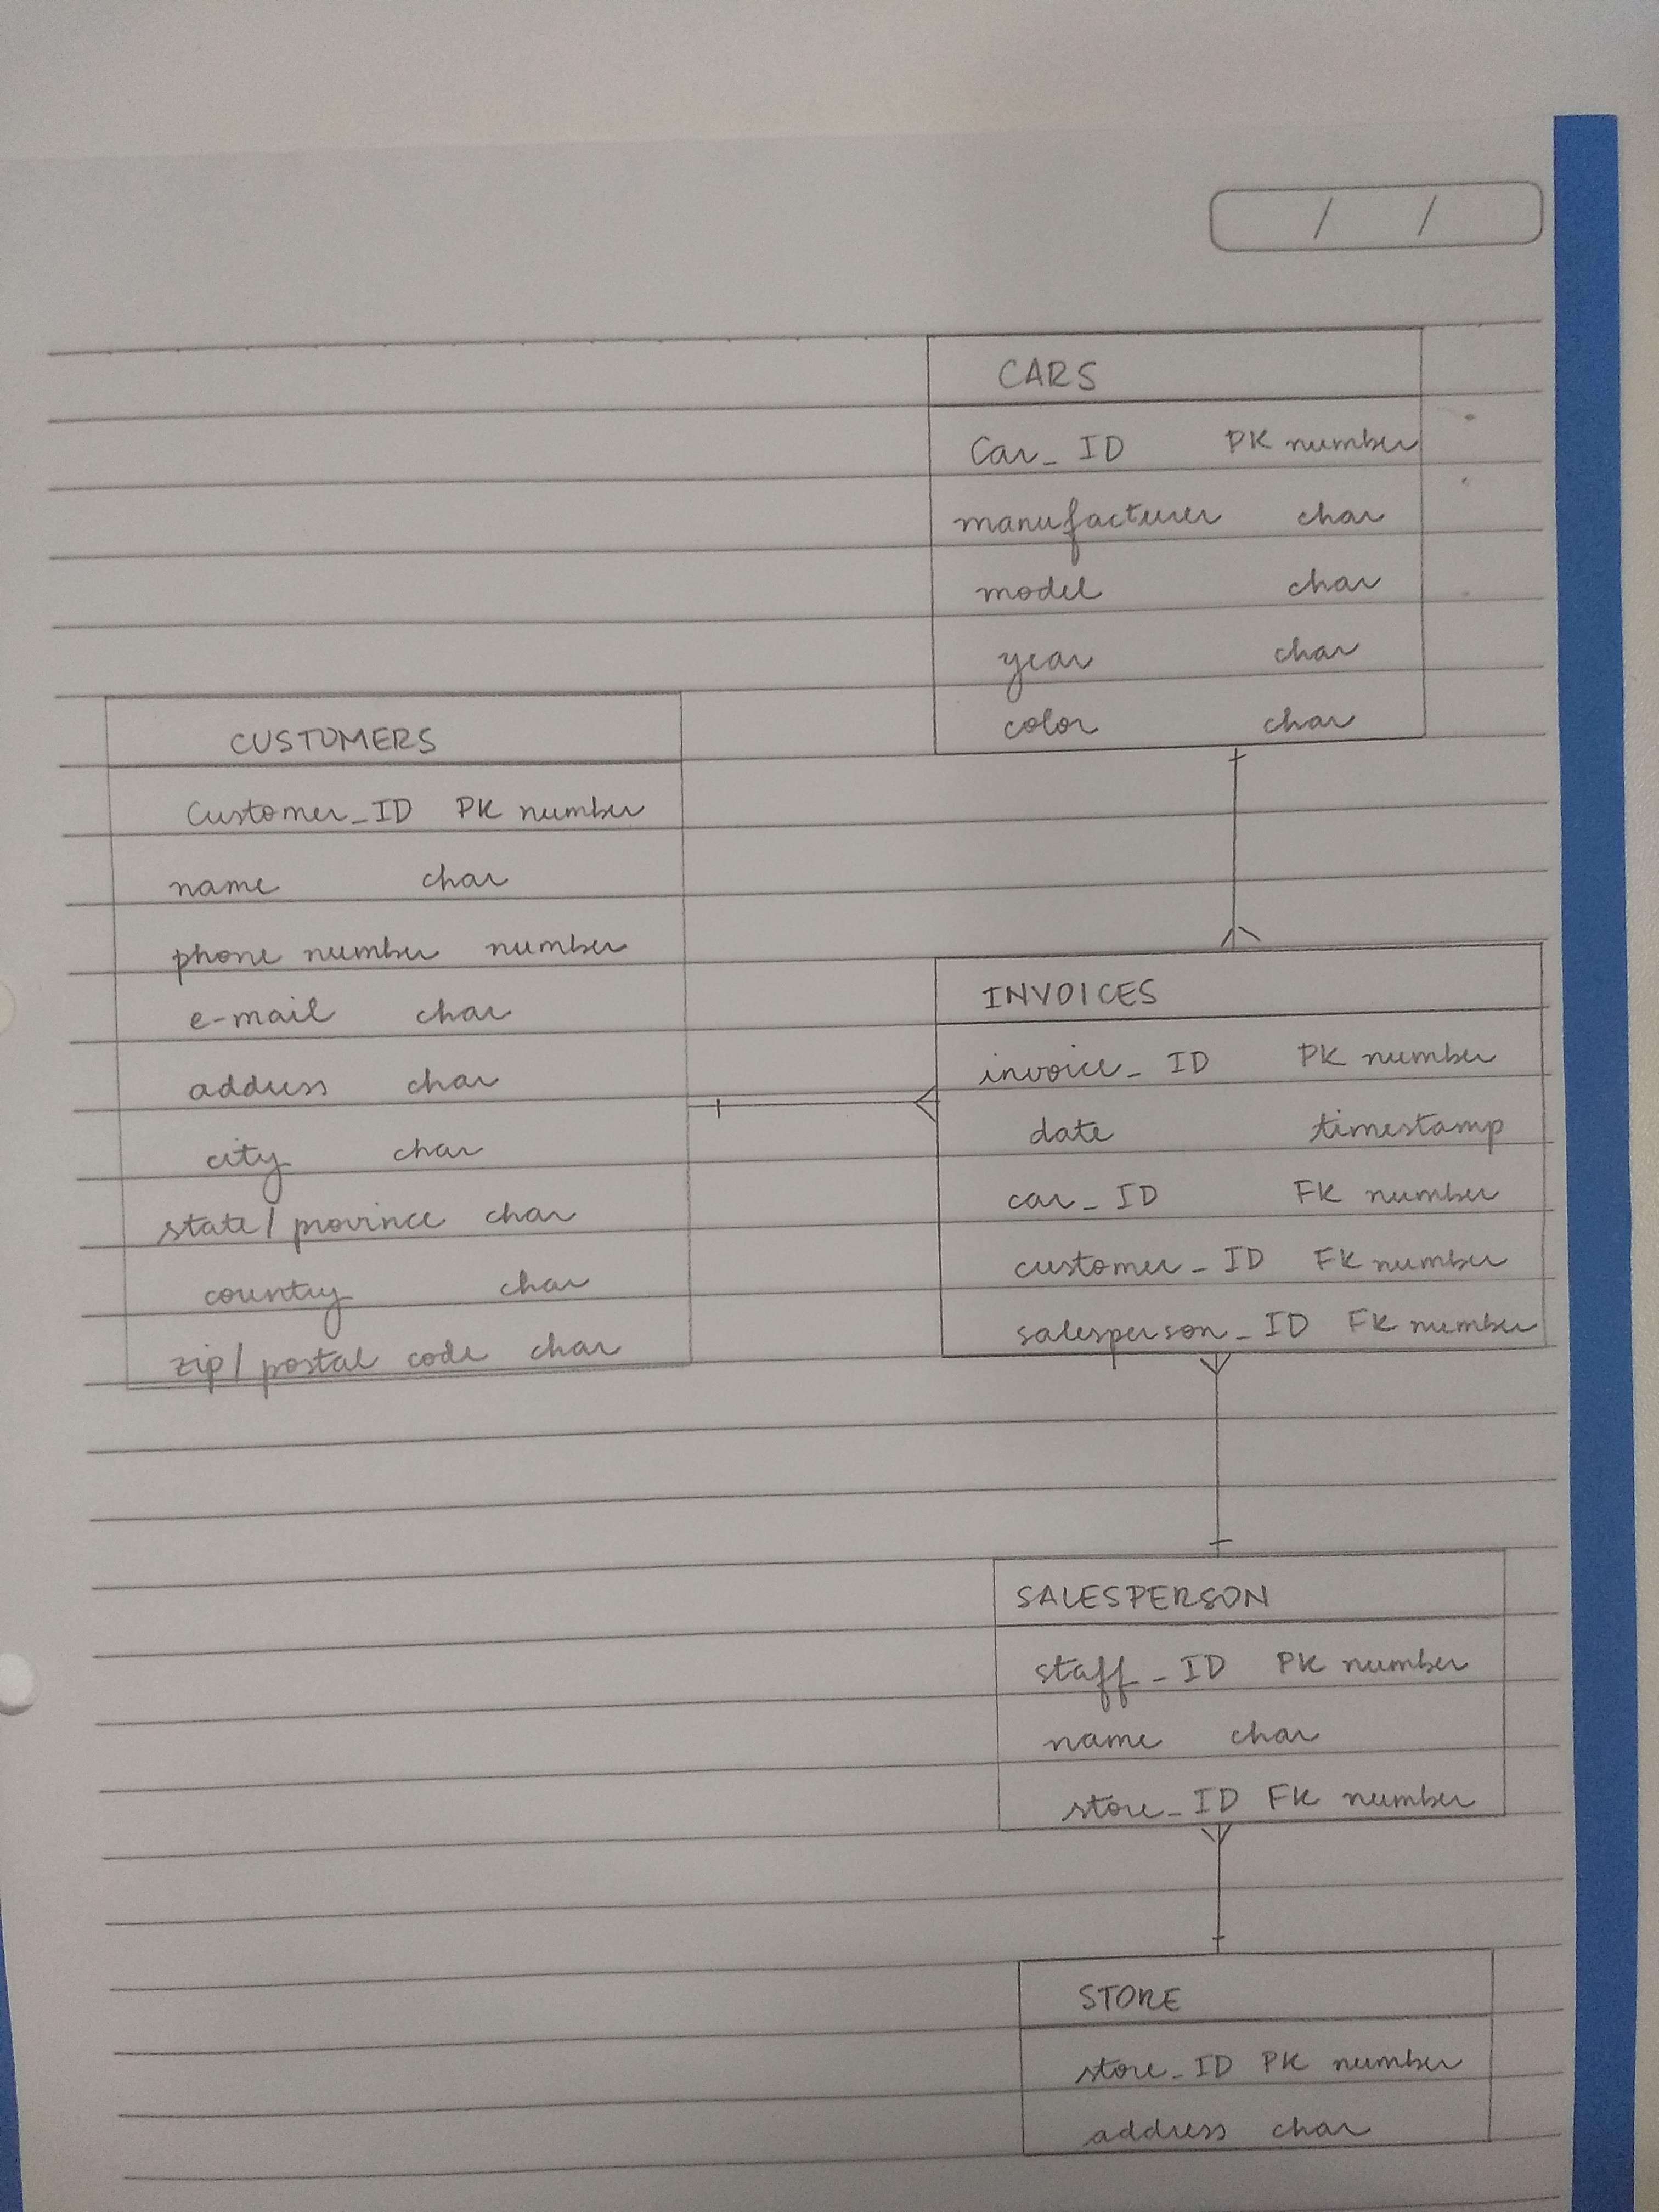 / /
CARS
Car_ID PK number
manufacturer char
model char
year char
color char
CUSTOMERS
Customer_ID PK number
name char
phone number number
e-mail char
address char
city char
state/province char
country char
zip/postal code char
INVOICES
invoice_ID PK number
date timestamp
car_ID FK number
customer_ID FK number
salesperson_ID FK number
SALESPERSON
staff_ID PK number
name char
store_ID FK number
STORE
store_ID PK number
address char